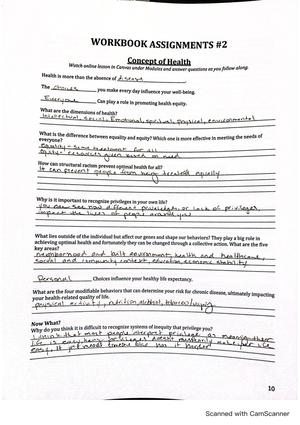 WORKBOOK ASSIGNMENTS #2
Concept of Health
Watch online lesson in Canvas under Modules and answer questions as you follow along.
Health is more than the absence of disease
The choices you make every day influence your well-being.
Everyone Can play a role in promoting health equity.
What are the dimensions of health?
Intellectual, social, Emotional, spiritual, physical, environmental
What is the difference between equality and equity? Which one is more effective in meeting the needs of
everyone?
Equality - same treatment for all
Equity - resources given based on need
How can structural racism prevent optimal health for all?
It can prevent people from being treated equally
Why is it important to recognize privileges in your own life?
you can see how different privileges or lack of privileges,
impact the lives of people around you
What lies outside of the individual but affect our genes and shape our behaviors? They play a big role in
achieving optimal health and fortunately they can be changed through a collective action. What are the five
key areas?
neighborhood and built environment, health and healthcare,
social and community context, education, economic stability
Personal Choices influence your healthy life expectancy.
What are the four modifiable behaviors that can determine your risk for chronic disease, ultimately impacting
your health-related quality of life.
physical activity, nutrition, alcohol, tobacco/vaping
Now What?
Why do you think it is difficult to recognize systems of inequity that privilege you?
I think that most people interpret privilege as meaning their
life is easy,
easy. It just means someone else has it harder
10
Scanned with CamScanner